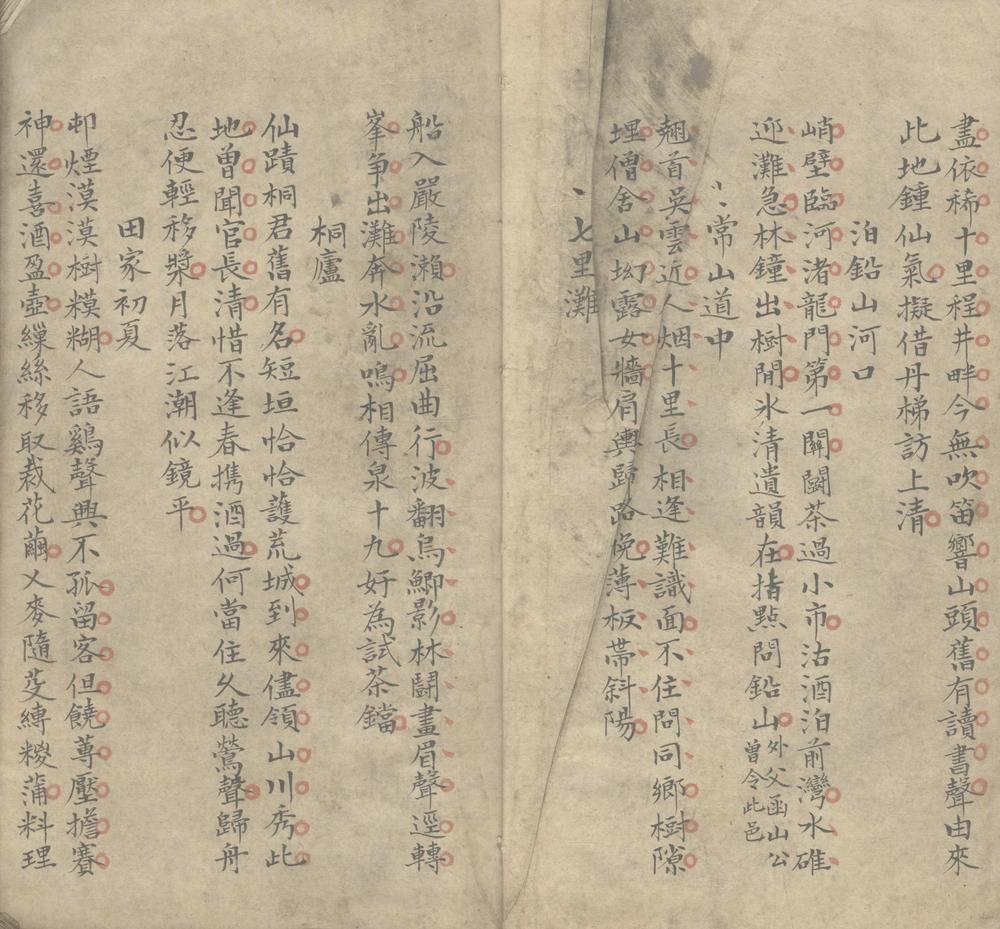 盡依稀十里程井畔今無吹笛響山頭舊有讀書聲由來
此地鍾仙氣擬借丹梯訪上清
泊鉛山河口
峭壁臨河渚龍門第一關鬭茶過小市沽酒泊前灣水碓
迎灘急林鐘出樹閒氷清遺韻在指點問鉛山外父函山公曾令此邑
常山道中
翹首吳雲近人烟十里長相逢難識面不住問同鄉樹隙
埋僧舍山坳露女牆肩輿歸路晚薄板帶斜陽
七里灘
船入嚴陵瀨沿流屈曲行波翻烏鯽影林鬭畫眉聲逕轉
峯爭出灘奔水亂鳴相傳泉十九好為試茶鐺
桐廬
仙蹟桐君舊有名短垣恰恰護荒城到來儘領山川秀此
地曾聞官長清惜不逢春携酒過何當住久聽鶯聲歸舟
忍便輕移槳月落江潮似鏡平
田家初夏
邨煙漠漠樹糢糊人語鷄聲興不孤留客但饒蓴壓擔賽
神還喜酒盈壺繅絲移取栽花繭乂麥隨芟縛糉蒲料理